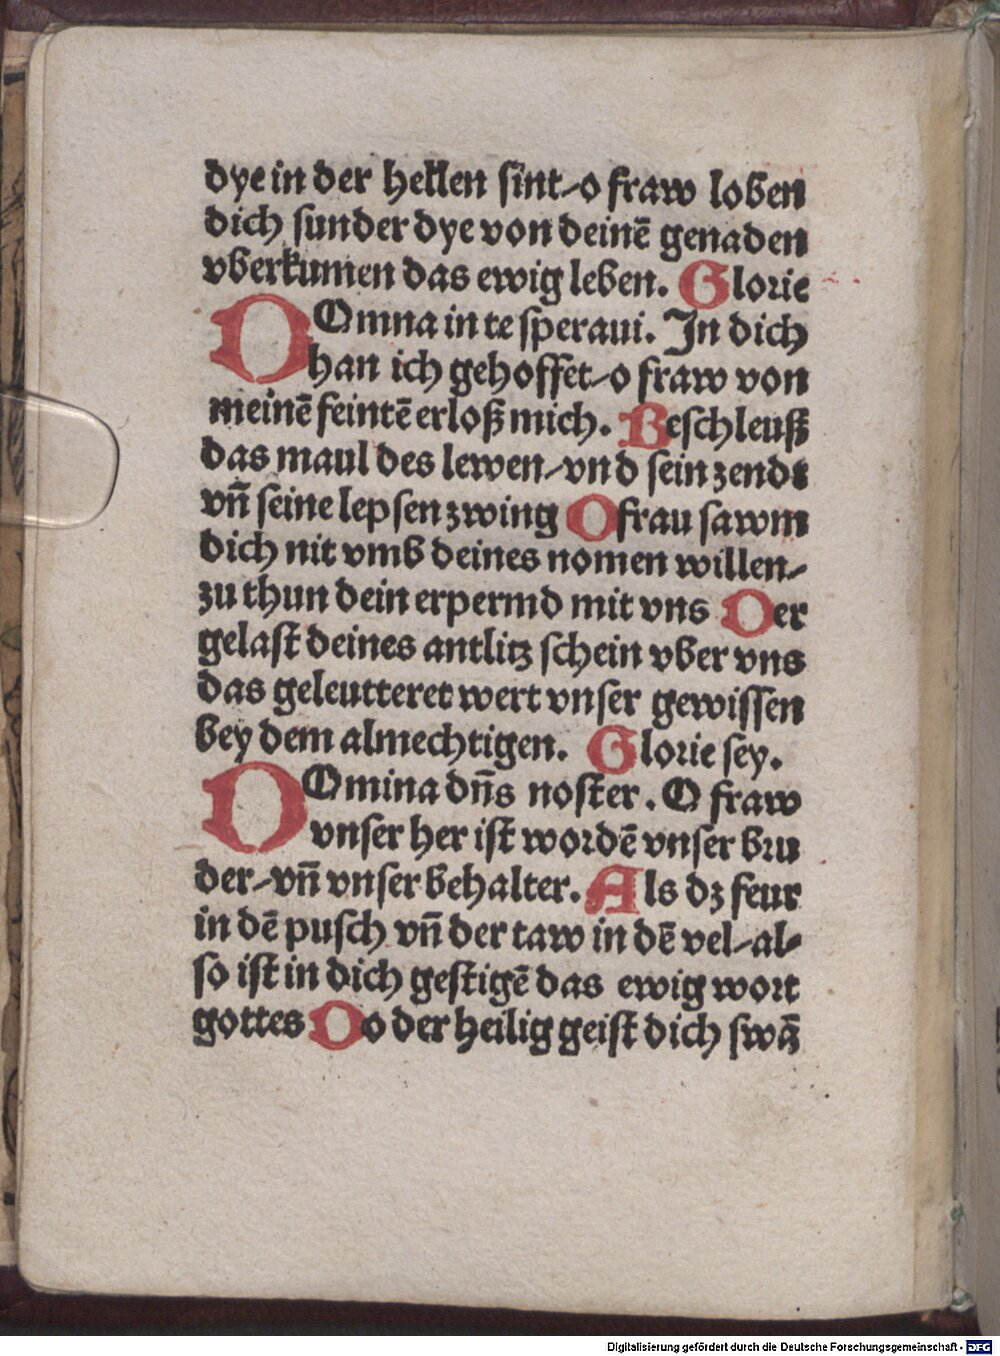 dye in der hellen sint/o fraw loben
dich sunder dye von deinē genaden
vberkumen das ewig leben. Glorie
DOmna in te speraui. In dich
han ich gehoffet/o fraw von
meinē feintē erloß mich. Beschleuß
das maul des lewen/vnd sein zendt
vñ seine lepsen zwing O frau sawm
dich nit vmb deines nomen willen/
zu thun dein erpermd mit vns Der
gelast deines antlitz schein vber vns
das geleutteret wert vnser gewissen
bey dem almechtigen. Glorie sey.
DOmina dñs noster. O fraw
vnser her ist wordē vnser bru
der/vñ vnser behalter. Als dz feur
in dē pusch vñ der taw in dē vel/al/
so ist in dich gestigē das ewig wort
gottes Do der heilig geist dich swā
Digitalisierung gefördert durch die Deutsche Forschungsgemeinschaft - DFG